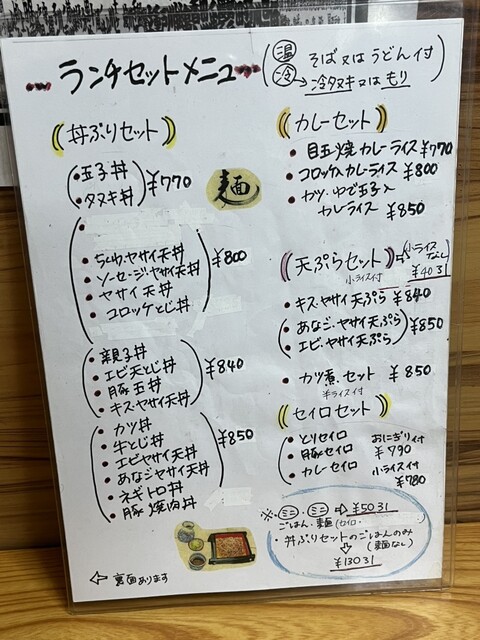 ランチセットメニュー
(温 そば又はうどん付
冷→冷タヌキ又はもり)
丼ぷりセット
・玉子丼
・タヌキ丼
¥770
麺
・ちくわ・ヤサイ天丼
・ソーセージ・ヤサイ天丼
・ヤサイ天丼
・コロッケとじ丼
¥800
・親子丼
・エビ天とじ丼
・豚玉丼
・キス・ヤサイ天丼
¥840
・カツ丼
・牛とじ丼
・エビヤサイ天丼
・あなジヤサイ天丼
・ネギトロ丼
・豚焼肉丼
¥850
← 裏面あります
カレーセット
・目玉焼カレーライス ¥770
・コロッケカレーライス ¥800
・カツ・ゆで玉子入
カレライス ¥850
天ぷらセット
小ライス付
(小ライスなし
¥40引)
・キス・ヤサイ天ぷら ¥840
・あなジ・ヤサイ天ぷら
・エビ・ヤサイ天ぷら
¥850
・カツ煮・セット ¥850
半ライス付
セイロセット
・とりセイロ おにぎり付
・豚セイロ ¥790
・カレーセイロ 小ライス付
¥780
※ミニ・ミニ ⇒ ¥50引
ごはん・麺(セイロ・
・丼ぷりセットのごはんのみ
(麺なし)
⇓
¥130引